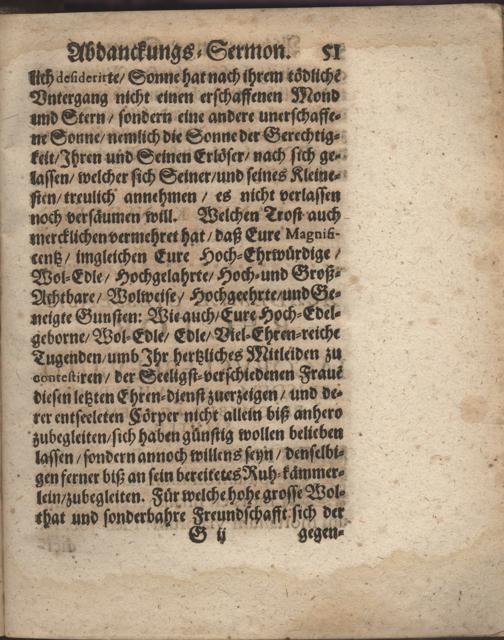 Abdanckungs-Sermon. 51
lich desiderirte/ Sonne hat nach ihrem tödlichē
Untergang nicht einen erschaffenen Mond
und Stern/ sondern eine andere unerschaffe-
ne Sonne/ nemlich die Sonne der Gerechtig-
keit/ Ihren und Seinen Erlöser/ nach sich ge-
lassen/ welcher sich Seiner/ und seines Kleine-
sten/ treulich annehmen / es nicht verlassen
noch versäumen will. Welchen Trost auch
mercklichen vermehret hat/ daß Eure Magnifi-
centz/ imgleichen Eure Hoch-Ehrwürdige /
Wol-Edle/ Hochgelahrte/ Hoch-und Groß-
Achtbare/ Wolweise/ Hochgeehrte/ und Ge-
neigte Gunsten: Wie auch/ Eure Hoch-Edel-
geborne/ Wol-Edle/ Edle/ Viel-Ehren-reiche
Tugenden/ umb Ihr hertzliches Mitleiden zu
contestiren/ der Seeligst-verschiedenen Frauē
diesen letzten Ehren-dienst zuerzeigen/ und de-
rer entseeleten Cörper nicht allein biß anhero
zubegleiten/ sich haben günstig wollen belieben
lassen/ sondern annoch willens seyn/ denselbi-
gen ferner biß an sein bereitetes Ruh-kämmer-
lein/ zubegleiten. Für welche hohe grosse Wol-
that und sonderbahre Freundschafft sich der
G ij gegen-